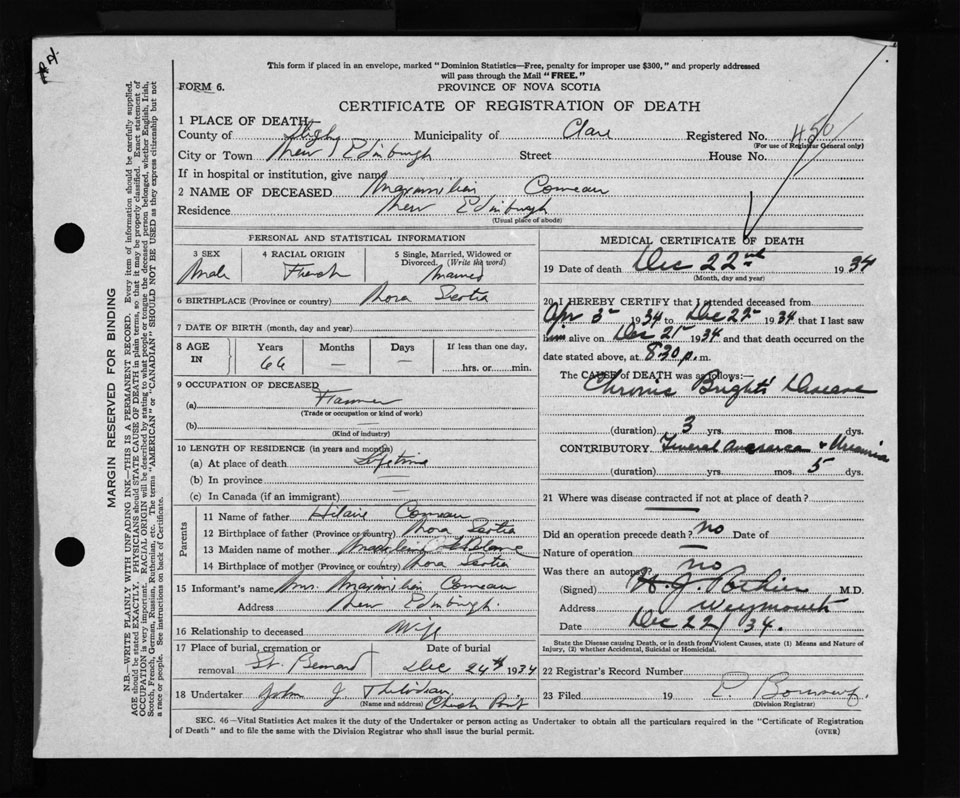 This form if placed in an envelope, marked "Dominion Statistics—Free, penalty for improper use $300," and properly addressed
will pass through the Mail "FREE."
FORM 6.
PROVINCE OF NOVA SCOTIA
CERTIFICATE OF REGISTRATION OF DEATH
1 PLACE OF DEATH
County of Digby Municipality of Clare Registered No. 450
(For use of Registrar General only)
City or Town New Edinburgh Street House No.
If in hospital or institution, give name
2 NAME OF DECEASED Maximilian Comeau
Residence New Edinburgh
(Usual place of abode)
PERSONAL AND STATISTICAL INFORMATION
3 SEX 4 RACIAL ORIGIN 5 Single, Married, Widowed or
Divorced. (Write the word)
Male French Married
6 BIRTHPLACE (Province or country) Nova Scotia
7 DATE OF BIRTH (month, day and year)
8 AGE IN Years Months Days If less than one day,
66 — — hrs. or min.
9 OCCUPATION OF DECEASED
(a) Farmer
(Trade or occupation or kind of work)
(b) —
(Kind of industry)
10 LENGTH OF RESIDENCE (in years and months)
(a) At place of death Lifetime
(b) In province —
(c) In Canada (if an immigrant) —
Parents
11 Name of father Hilaire Comeau
12 Birthplace of father (Province or country) Nova Scotia
13 Maiden name of mother LeBlanc
14 Birthplace of mother (Province or country) Nova Scotia
15 Informant's name Mrs. Maximilian Comeau
Address New Edinburgh.
16 Relationship to deceased Wife
17 Place of burial, cremation or Date of burial
removal St. Bernard Dec 24th 1934
18 Undertaker John J Thibodeau
(Name and address) Church Point
MEDICAL CERTIFICATE OF DEATH
19 Date of death Dec 22nd 1934
(Month, day and year)
20 I HEREBY CERTIFY that I attended deceased from
Apr 3 1934 to Dec 22 1934 that I last saw
him alive on Dec 21 1934 and that death occurred on the
date stated above, at 8.30 p.m.
The CAUSE of DEATH was as follows:—
Chronic Bright's Disease
(duration) 3 yrs. mos. dys.
CONTRIBUTORY General Anasarca & Uraemia
(duration) yrs. mos. 5 dys.
21 Where was disease contracted if not at place of death?
—
Did an operation precede death? no Date of
Nature of operation —
Was there an autopsy? no
(Signed) H. J. Pothier M.D.
Address Weymouth
Date Dec 22/34.
State the Disease causing Death, or in death from Violent Causes, state (1) Means and Nature of
Injury, (2) whether Accidental, Suicidal or Homicidal.
22 Registrar's Record Number
23 Filed 19
(Division Registrar)
SEC. 46—Vital Statistics Act makes it the duty of the Undertaker or person acting as Undertaker to obtain all the particulars required in the "Certificate of Registration
of Death" and to file the same with the Division Registrar who shall issue the burial permit.
(OVER)
MARGIN RESERVED FOR BINDING
N.B.—WRITE PLAINLY WITH UNFADING INK—THIS IS A PERMANENT RECORD. Every item of information should be carefully supplied.
AGE should be stated EXACTLY. PHYSICIANS should STATE CAUSE OF DEATH in plain terms, so that it may be properly classified. Exact statement of
OCCUPATION is very important. RACIAL ORIGIN will be described by stating to what people or tongue the deceased person belonged, whether English, Irish,
Scotch, French, German, Russian, Ruthenian, etc. The terms "AMERICAN" or "CANADIAN" SHOULD NOT BE USED as they express citizenship but not
a race or people. See instructions on back of Certificate.